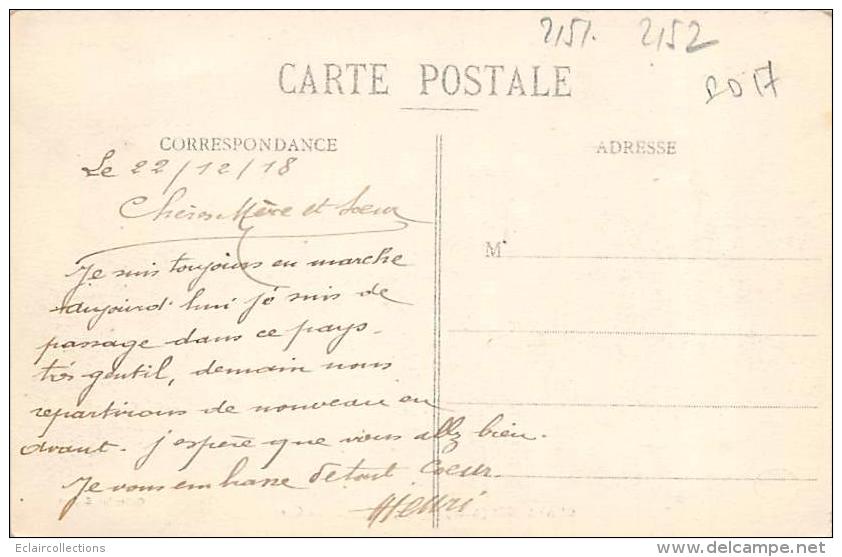 2151. 2152
2017
CARTE POSTALE
CORRESPONDANCE
ADRESSE
Le 22/12/18
Chères Mère et Soeur
M
Je suis toujours en marche
aujourd'hui je suis de
passage dans ce pays
très gentil, demain nous
repartirons de nouveau en
avant. j'espère que vous allz bien.
Je vous embrasse de tout Coeur.
Henri
Eclaircollections
www.delcampe.net